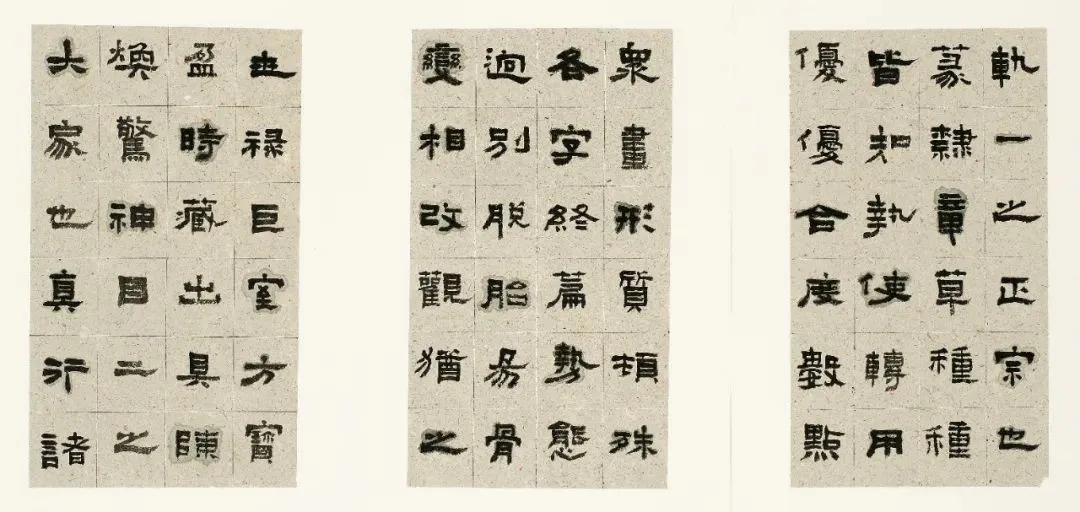 軌一之正宗也
篆隸章草種種
皆知執使轉用
優優合度數點
衆畫形質頓殊
各字終篇勢態
迥別脫胎易骨
變相改觀猶之
世祿巨室方寶
盈時藏出具陳
煥驚神目二之
大家也真行諸